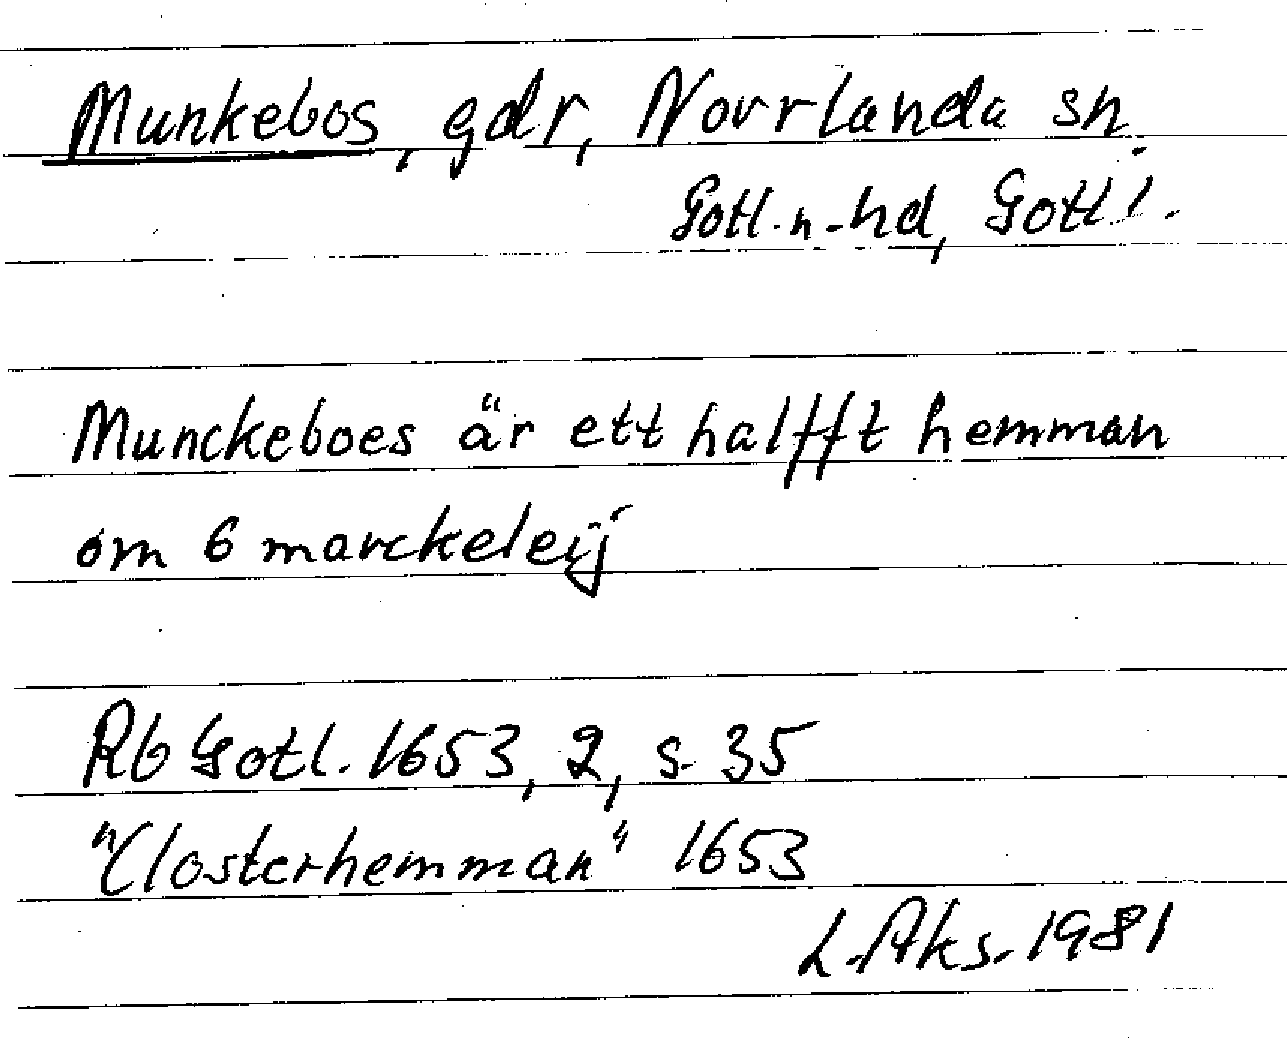 Munkebos, gdr, Norrlanda sn.
Gotl. n. hd, Gotl. l.
Munckeboes är ett halfft hemman
om 6 marckeleij
Rb Gotl. 1653, 2, s. 35
"Closterhemman" 1653
L. Aks. 1981